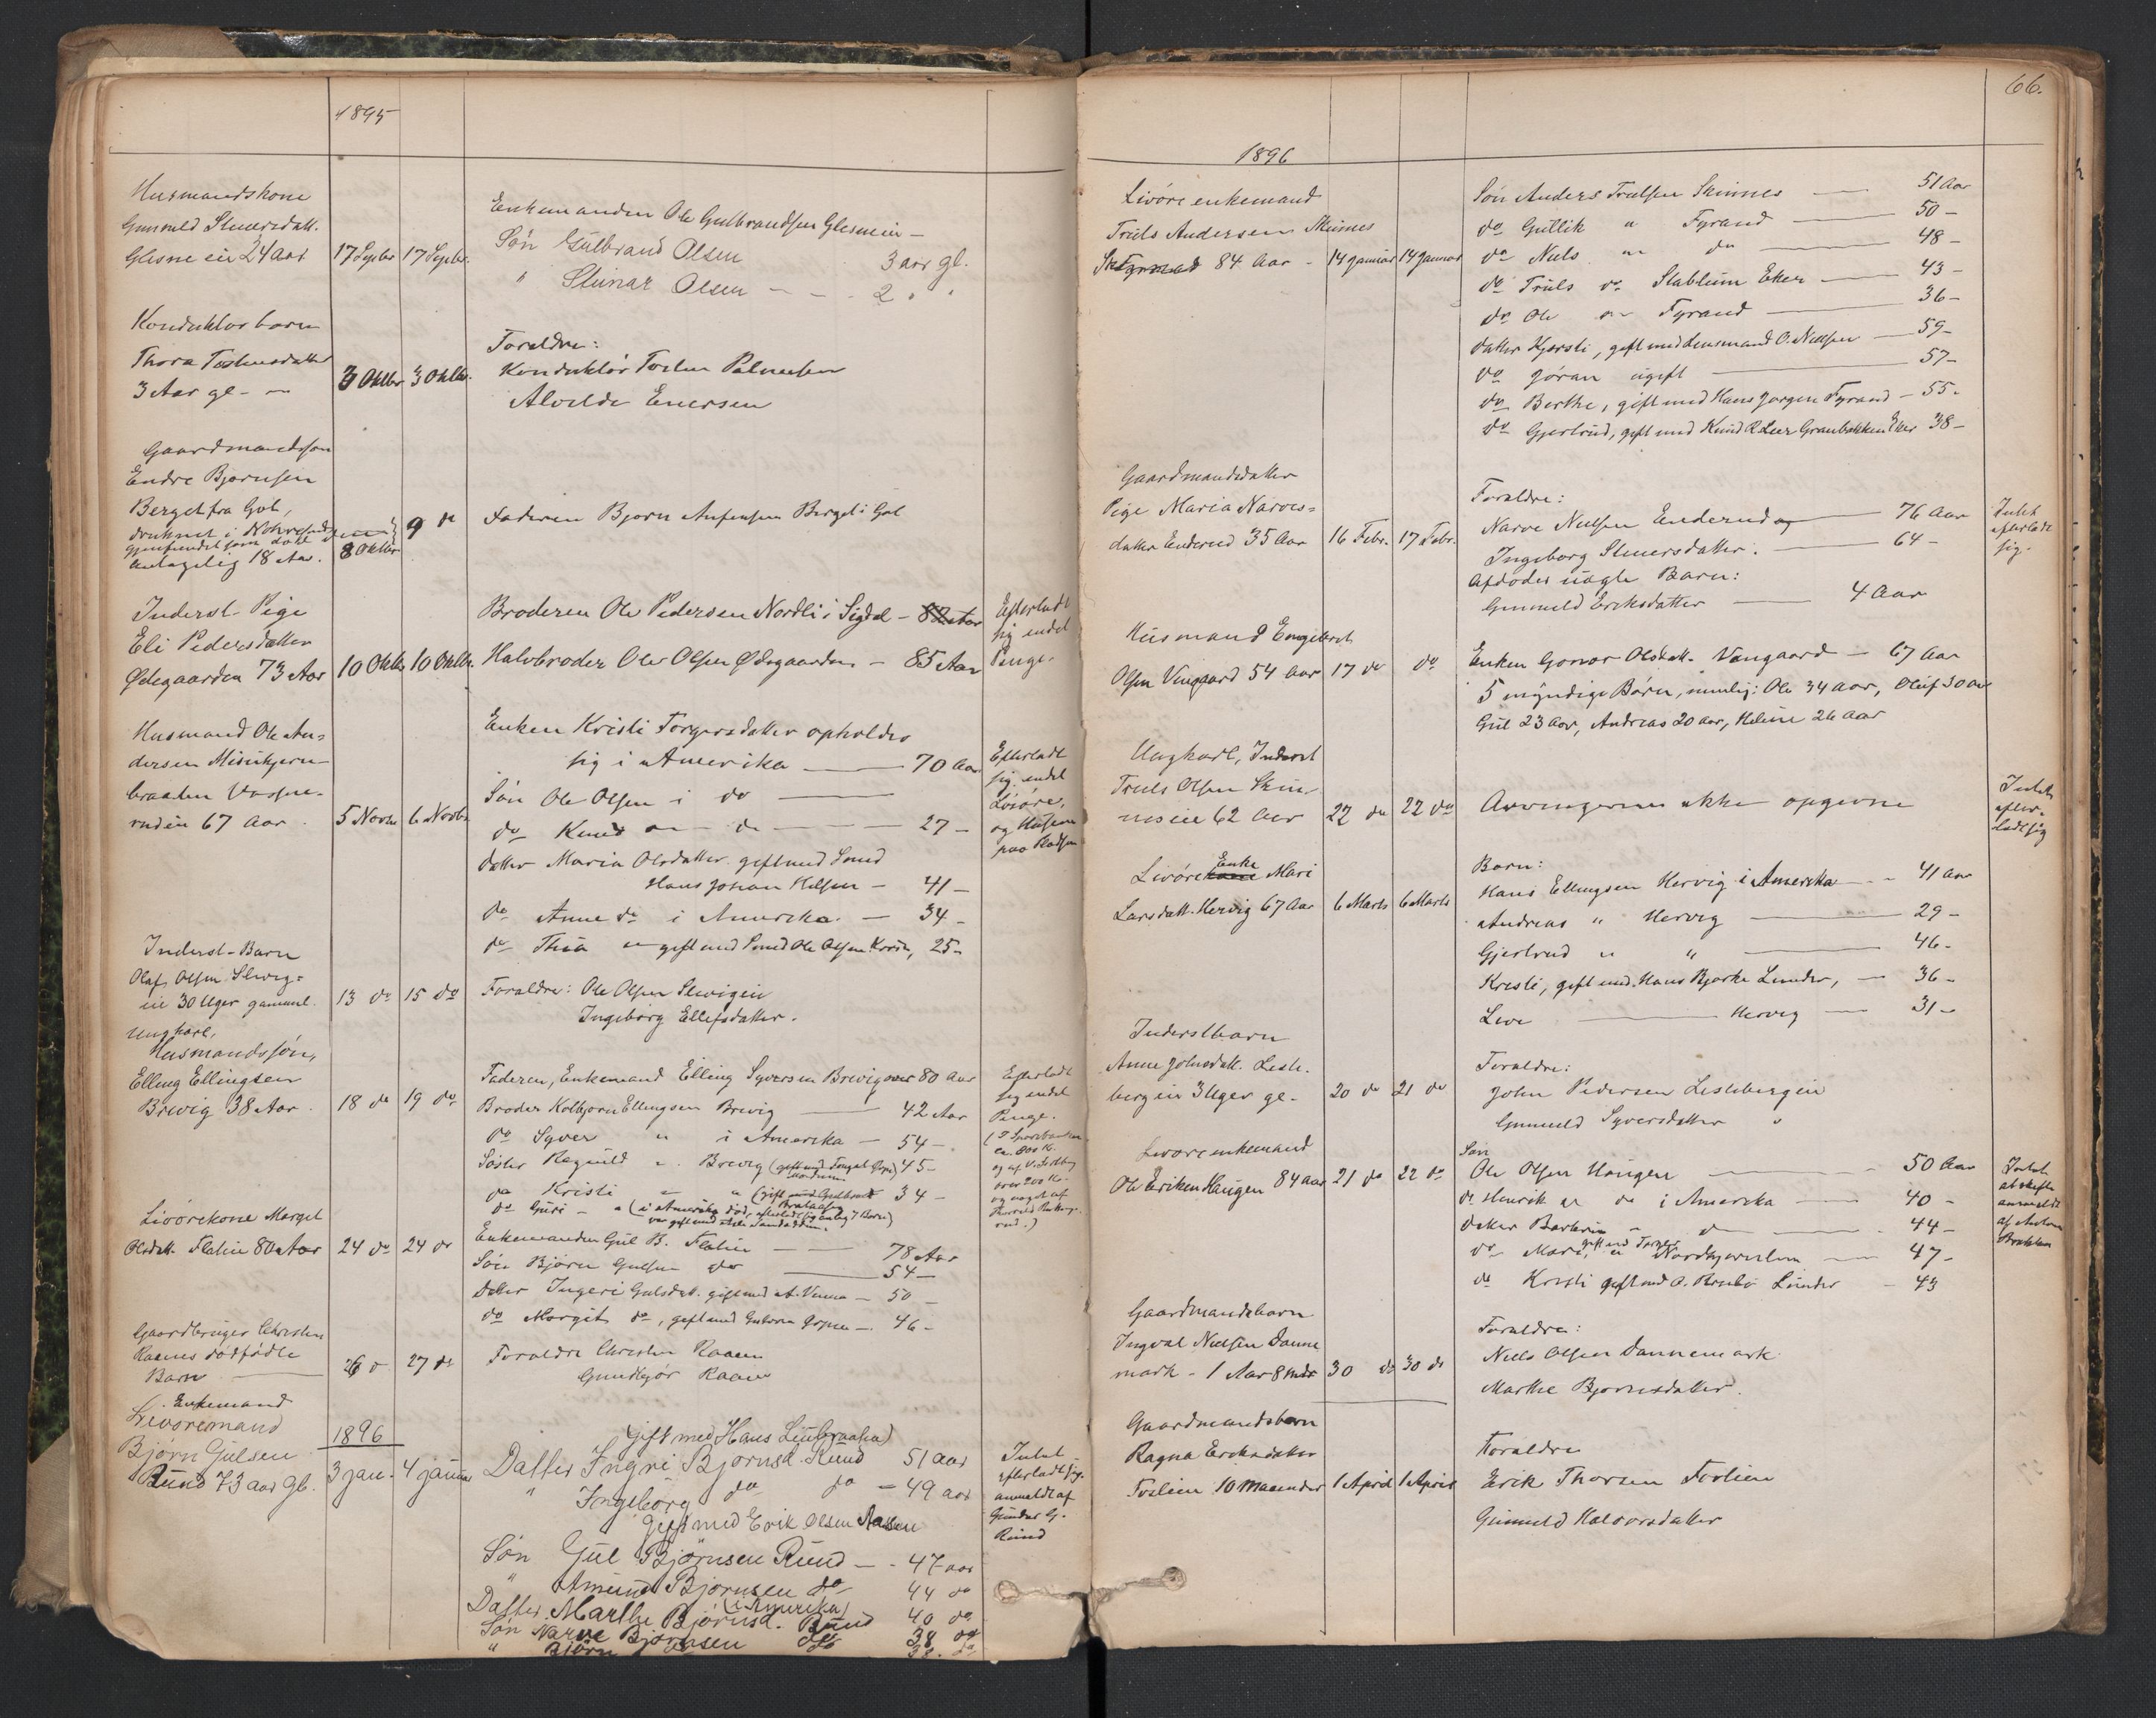 1895
Husmandskone
Gunnuld Steinersdatt.
24 Aar
17 Septbr 17 Septbr.
Enkemanden Ole Gulbrandsen
Søn Gulbrand Olsen 3 aar gl.
" Steinar Olsen - - - 2 " "
Konduktørbarn
Thora
3 Aar gl. -
3 Oktbr 3 Oktbr.
Forældre:
Konduktør
Alvilde Enersen
Gaardmandssøn
Endre Bjørnsen
Berget fra Gol,
druknet i
antagelig 18 Aar.
8 Oktbr
9 do
Faderen Bjørn Berget i Gol
Inderst-Pige
Eli Pedersdatter
Ødegaarden 73 Aar
10 Oktbr 10 Oktbr.
Broderen Ole Pedersen Nordli i Sigdal -
Halvbroder Ole Olsen Ødegaarden - 85 Aar
Efterladt
sig endel
Penge.
Husmand Ole An-
dersen
braaten
67 Aar.
5 Novbr 6 Novbr.
Enken Kristi Torgersdatter opholder
sig i Amerika — 70 Aar
Søn Ole Olsen i do —
do Knud — do — 27 -
Datter Maria Olsdatter gift med Smed
Hans Johan - 41 -
do Anne do i Amerika - 34 -
do Thea gift med Smed Ole Olsen 25 -
Efterladt
sig endel
Løsøre,
Inderst-Barn
Olaf Olsen
30 Uger gammel.
13 do 15 do
Forældre: Ole Olsen
Ingeborg Ellefsdatter.
Ungkarl,
Husmandssøn,
Elling Ellingsen
Brevig 38 Aar.
18 do 19 do
Faderen, Enkemand Elling Syversen Brevig over 80 Aar
Broder Kolbjørn Ellingsen Brevig — 42 Aar
do Syver " i Amerika - 54 -
Søster Ragnild " Brevig 45 -
do Kristi " " 34 -
do Guri - " (i Amerika død,
Efterladt
sig endel
Penge.
Livørekone Marget
Olsdatt. Flatin 80 Aar
24 do 24 do
Enkemanden Gul B. Flatin — 78 Aar
Søn Bjørn Gulsen do — 54 -
Datter Ingeri Gulsdatt. gift med — 50 -
do Margit do, gift med — 46 -
Gaardbruger Christen
Raaens dødfødte
Barn —
26 do 27 do
Forældre Christen Raaen
Gundbjør Raaen
Enkemand
Livøremand
Bjørn Gulsen
Ruud 73 aar gl.
1896
3 jan. 4 januar
(gift med Hans
Datter Ingri Bjørnsd. Ruud 51 aar
" Ingeborg do do - 49 aar
gift med Erik Olsen
Søn Gul Bjørnsen Ruud - - 47 aar
" Amund Bjørnsen do 44 do
(i Amerika)
Datter Marthe Bjørnsd. Ruud 40 do
Søn Narve Bjørnsen do 38 do
" Bjørn
Intet
efterladt sig.
anmeldt af
Gunder G.
Ruud
66.
1896
Livøreenkemand
Truls Andersen Skinnes
84 Aar -
14 Januar 14 Januar
Søn Anders Trulsen Skinnes — 51 Aar
do Gullik " Fyrand — 50 -
do Niels " do — 48 -
do Truls do Eker — 43 -
do Ole " Fyrand — 36 -
Datter Kjersti, gift med Lensmand O. Nielsen — 59 -
do Jøran ugift — 57 -
do Berthe, gift med Hans Jørgen Fyrand - 55 -
do Gjertrud, gift med Knud 38 -
Gaardmandsdatter
Pige Maria Narves-
datter Enderud 35 Aar
16 Febr. 17 Febr.
Forældre:
Narve Nielsen Enderud og — 76 Aar
Ingeborg Steinersdatter. — 64 -
Afdødes uægte Barn:
Gunnuld Eriksdatter — 4 Aar
Intet
efterladt
sig.
Husmand Engebret
Olsen Vengaard 54 Aar
17 do do
Enken Gonor Olsdatt. Vengaard - 67 Aar
5 myndige Børn, nemlig: Ole 34 Aar, Oluf 30 Aar
Gul 23 Aar, Andreas 20 Aar, Heline 26 Aar
Ungkarl, Inderst
Truls Olsen Skin-
62 Aar
22 do 22 do
Arvingerne ikke opgivne
Intet
efter-
ladt sig
Enke
Livøre Mari
Larsdatt. Hervig 67 Aar
6 Marts 6 Marts
Børn:
Hans Ellingsen Hervig i Amerika - - 41 Aar
Andreas " Hervig — 29 -
Gjertrud " " — 46 -
Kristi, gift med Hans Bjerke Lunder, - 36 -
Live — Hervig — 31 -
Inderstbarn
Anne Johnsdatt. Lesle-
bergeie 3 Uger gl.
20 do 21 do
Forældre:
John Pedersen Leslebergeie
Gunnuld Syversdatter "
Livøreenkemand
Ole Eriksen Haugen 84 Aar
21 do 22 do
Søn
Ole Olsen Haugen — 50 Aar
do Henrik do i Amerika — 40 -
Datter — 44 -
do Mari, — 47 -
do Kristi gift med Lunder - 43
Intet
at skifte
anmeldt
af
Gaardmandsbarn
Ingval Nielsen Danne
mark - 1 Aar 8 mdr
30 do 30 do
Forældre:
Niels Olsen Dannemark
Marthe Bjørnsdatter.
Gaardmandsbarn
Ragna Eriksdatter
10 Maaneder
1 April 1 April
Forældre
Erik Thorsen
Gunnuld Halvorsdatter